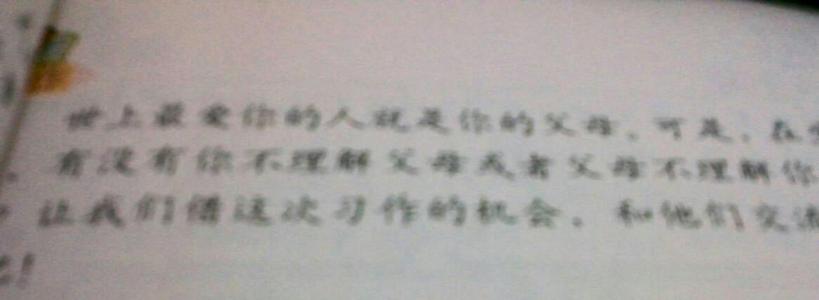 世上最爱你的人就是你的父母。可是,在
有没有你不理解父母或者父母不理解你
让我们借这次习作的机会,和他们交流
!